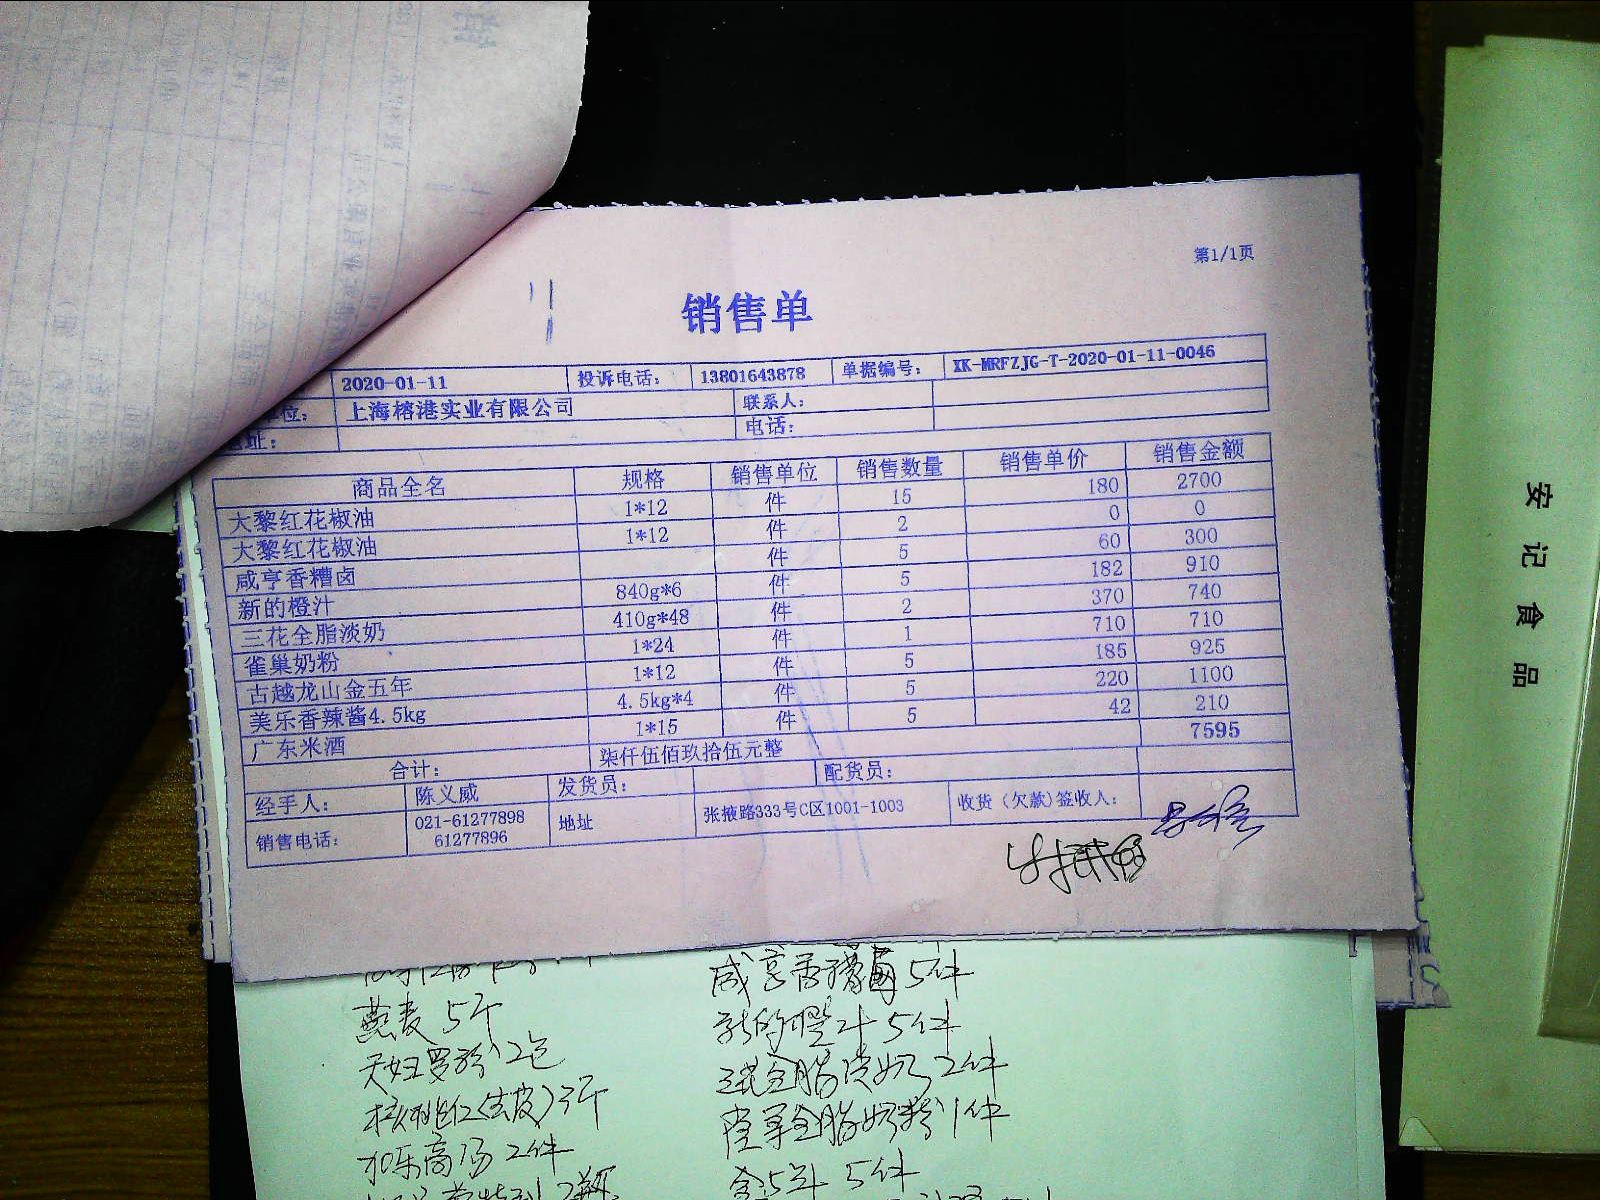 第1/1页
销售单
2020-01-11 投诉电话: 13801643878 单据编号: XK-MRFZJG-T-2020-01-11-0046
位: 上海榕港实业有限公司 联系人:
址: 电话:
商品全名 规格 销售单位 销售数量 销售单价 销售金额
大黎红花椒油 1*12 件 15 180 2700
大黎红花椒油 1*12 件 2 0 0
咸亨香糟卤 件 5 60 300
新的橙汁 840g*6 件 5 182 910
三花全脂淡奶 410g*48 件 2 370 740
雀巢奶粉 1*24 件 1 710 710
古越龙山金五年 1*12 件 5 185 925
美乐香辣酱4.5kg 4.5kg*4 件 5 220 1100
广东米酒 1*15 件 5 42 210
合计: 柒仟伍佰玖拾伍元整 7595
经手人: 陈义威 发货员: 配货员:
销售电话: 021-61277898 61277896 地址 张掖路333号C区1001-1003 收货（欠款)签收人:
燕麦 5斤
天妇罗粉 2包
核桃仁(去皮) 3斤
2件
咸亨香糟卤 5件
新的橙汁 5件
三花全脂淡奶 2件
全脂奶粉 1件
金5年 5件
安记食品